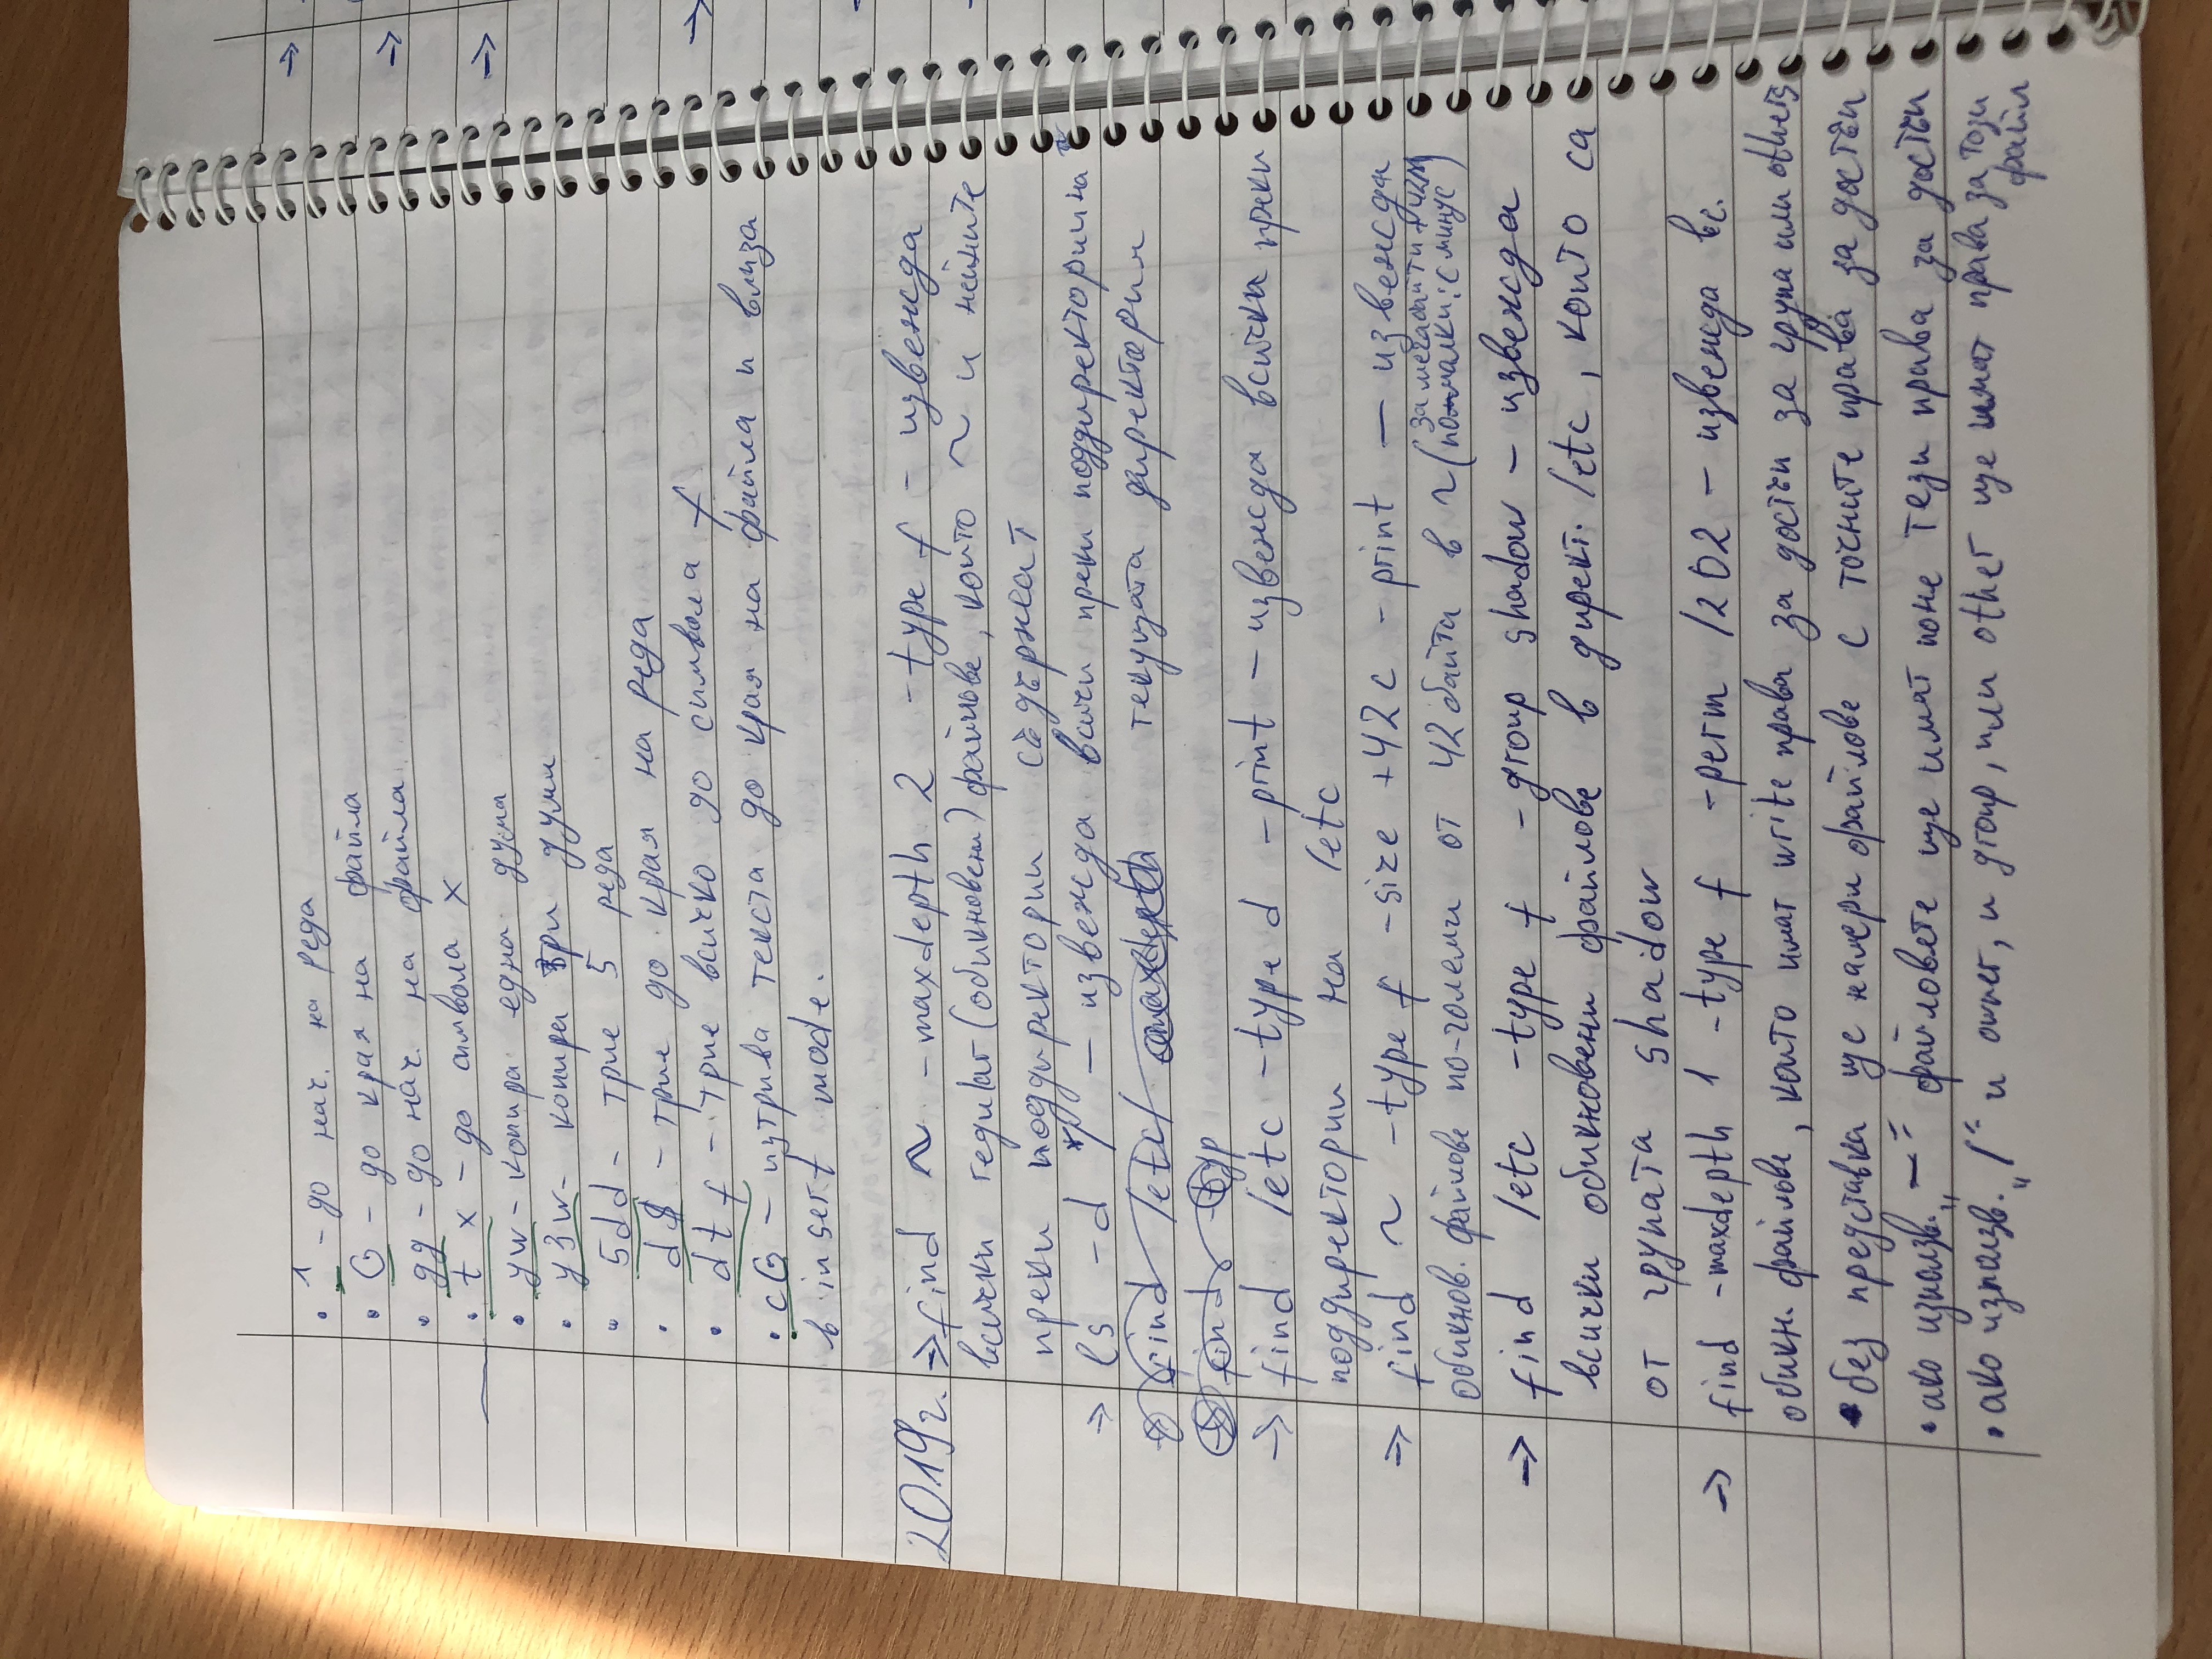 • ^ - до нач. на реда
• G - до края на файла
• gg - до нач. на файла
• t x - до символа x
• yw - копира една дума
• y3w - копира три думи
• 5dd - трие 5 реда
• d$ - трие до края на реда
• dt f - трие всичко до символа f
• cG - изтрива текста до края на файла и влиза
в insert mode.
2019г. → find ~ -maxdepth 2 -type f - извежда
всички regular (обикновени) файлове, които ~ и нейните
преки поддиректории съдържат
→ ls -d */ — извежда всички преки поддиректории на
find /etc/ maxdepth текущата директория
find -typ
→ find /etc -type d -print — извежда всички преки
поддиректории на /etc
→ find ~ -type f -size +42c -print — извежда
за мегабайти +42M
обикнов. файлове по-големи от 42 байта в ~ (по-малки: с минус)
→ find /etc -type f -group shadow — извежда
всички обикновени файлове в директ. /etc, които са
от групата shadow
→ find -maxdepth 1 -type f -perm /202 — извежда вс.
обикн. файлове, които имат write права за достъп за група или others
• без представка ще намери файлове с точните права за достъп
• ако използв. „-“ файловете ще имат поне тези права за достъп
• ако използв. „/“ и owner, и group, или other ще имат права за този
файл